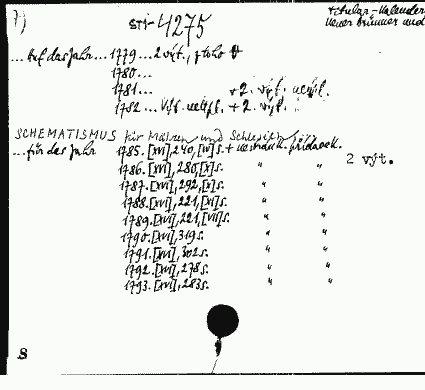 7)
ST1-4275
titular-Kalender
neuer brünner und
... Auf das Jahr... 1779... 2 výt., z toho
1780...
1781... + 2. výt. neúpl.
1782... výt. neúpl. + 2. výt.
SCHEMATISMUS für Mähren und Schlesien
... für das Jahr 1785. [XVI], 240, [IV] s. + nestránk. přídavek.
2 výt.
1786. [XVI], 280, [X] s. " "
1787. [XVI], 292, [X] s. " "
1788. [XVI], 221, [X] s. " "
1789. [XVI], 221, [VII] s. " "
1790. [XVI], 319 s. " "
1791. [XVI], 302 s. " "
1792. [XVI], 278 s. " "
1793. [XVI], 283 s. " "
8